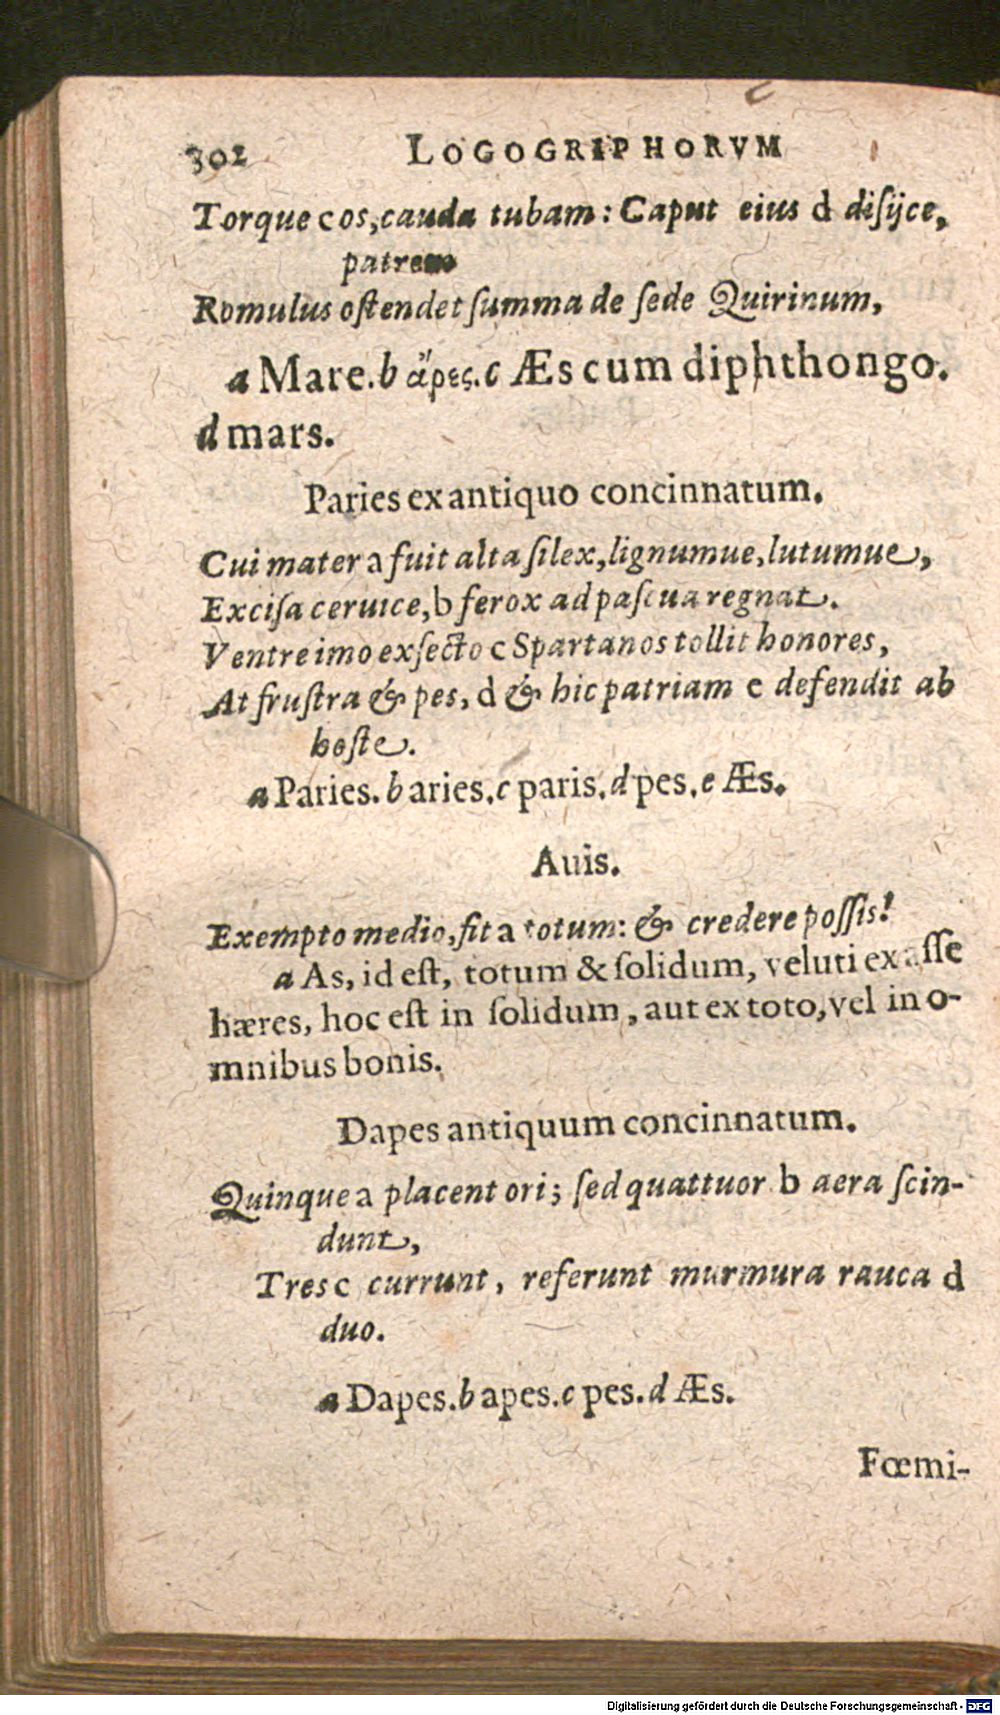 302 LOGOGRIPHORVM
Torque c os, cauda tubam: Caput eius d disijce,
patrem
Romulus ostendet summa de sede Quirinum,
a Mare. b ἄρες. c Æs cum diphthongo.
d mars.
Paries ex antiquo concinnatum.
Cui mater a fuit alta silex, lignumue, lutumue,
Excisa ceruice, b ferox ad pascua regnat.
Ventre imo exsecto c Spartanos tollit honores,
At frustra & pes, d & hic patriam e defendit ab
hoste.
a Paries. b aries. c paris. d pes. e Æs.
Auis.
Exempto medio, fit a totum: & credere possis!
a As, id est, totum & solidum, veluti ex asse
hæres, hoc est in solidum, aut ex toto, vel in o-
mnibus bonis.
Dapes antiquum concinnatum.
Quinque a placent ori; sed quattuor b aera scin-
dunt,
Tres c currunt, referunt murmura rauca d
duo.
a Dapes. b apes. c pes. d Æs.
Fœmi-
Digitalisierung gefördert durch die Deutsche Forschungsgemeinschaft - DFG